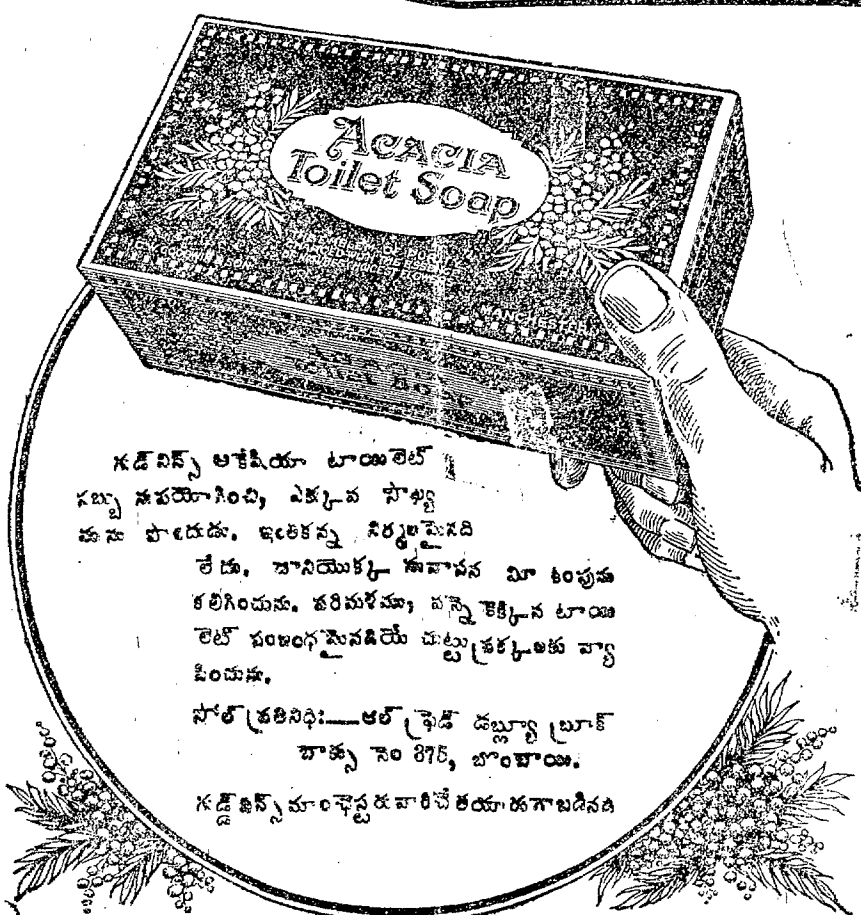 ACACIA
Toilet Soap
గుడ్ విన్స్ అకేషియా టాయిలెట్
సబ్బు నుపయోగించి, ఎక్కువ సౌఖ్య
మును పొందుడు. ఇంతకన్న నిర్మలమైనది
లేదు. దానియొక్క సువాసన మీ కింపును
కలిగించును. పరిమళము, వన్నె కెక్కిన టాయి
లెట్ సంబంధమైనదియే చుట్టుప్రక్కలకు వ్యా
పించును.
సోల్ ప్రతినిధిః—ఆల్ ఫ్రెడ్ డబ్ల్యూ బ్రూక్
బాక్సు నెం 375, బొంబాయి.
గుడ్ విన్స్ మాంఛెస్టరువారిచే తయారుగాబడినది